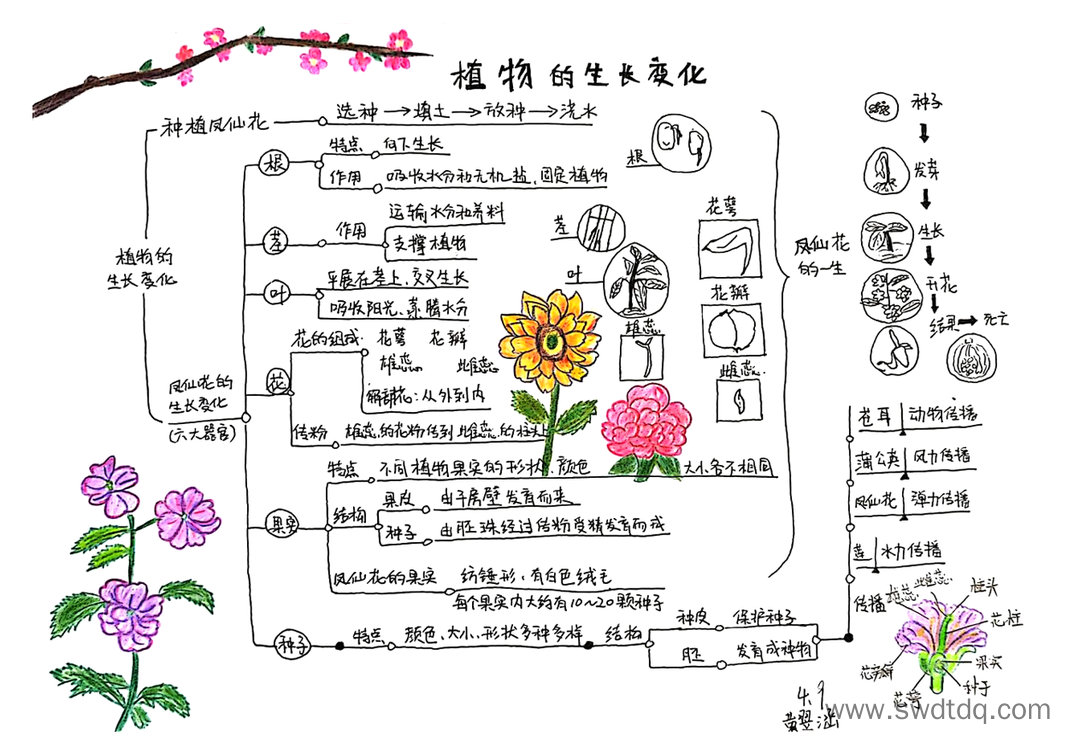 植物的生长变化
植物的
生长变化
种植凤仙花
选种→填土→放种→浇水
凤仙花的
生长变化
(六大器官)
根
特点 向下生长
作用 吸收水分和无机盐、固定植物
茎
作用
运输水分和养料
支撑植物
叶
平展在茎上,交叉生长
吸收阳光、蒸腾水分
花
花的组成: 花萼 花瓣
雄蕊 雌蕊
解剖花:从外到内
传粉 雄蕊的花粉传到雌蕊的柱头
果实
特点 不同植物果实的形状、颜色 大小各不相同
结构
果皮 由子房壁发育而来
种子 由胚珠经过传粉受精发育而成
凤仙花的果实 纺锤形,有白色绒毛
每个果实内大约有10~20颗种子
种子
特点 颜色、大小、形状多种多样
结构
种皮 保护种子
胚 发育成种物
根
茎
叶
花萼
花瓣
雄蕊
雌蕊
凤仙花
的一生
种子
发芽
生长
开花
结果→死亡
苍耳 动物传播
蒲公英 风力传播
凤仙花 弹力传播
莲 水力传播
传播
雄蕊
雌蕊
柱头
花柱
果实
种子
花瓣
花萼
4.9
www.swdtdq.com